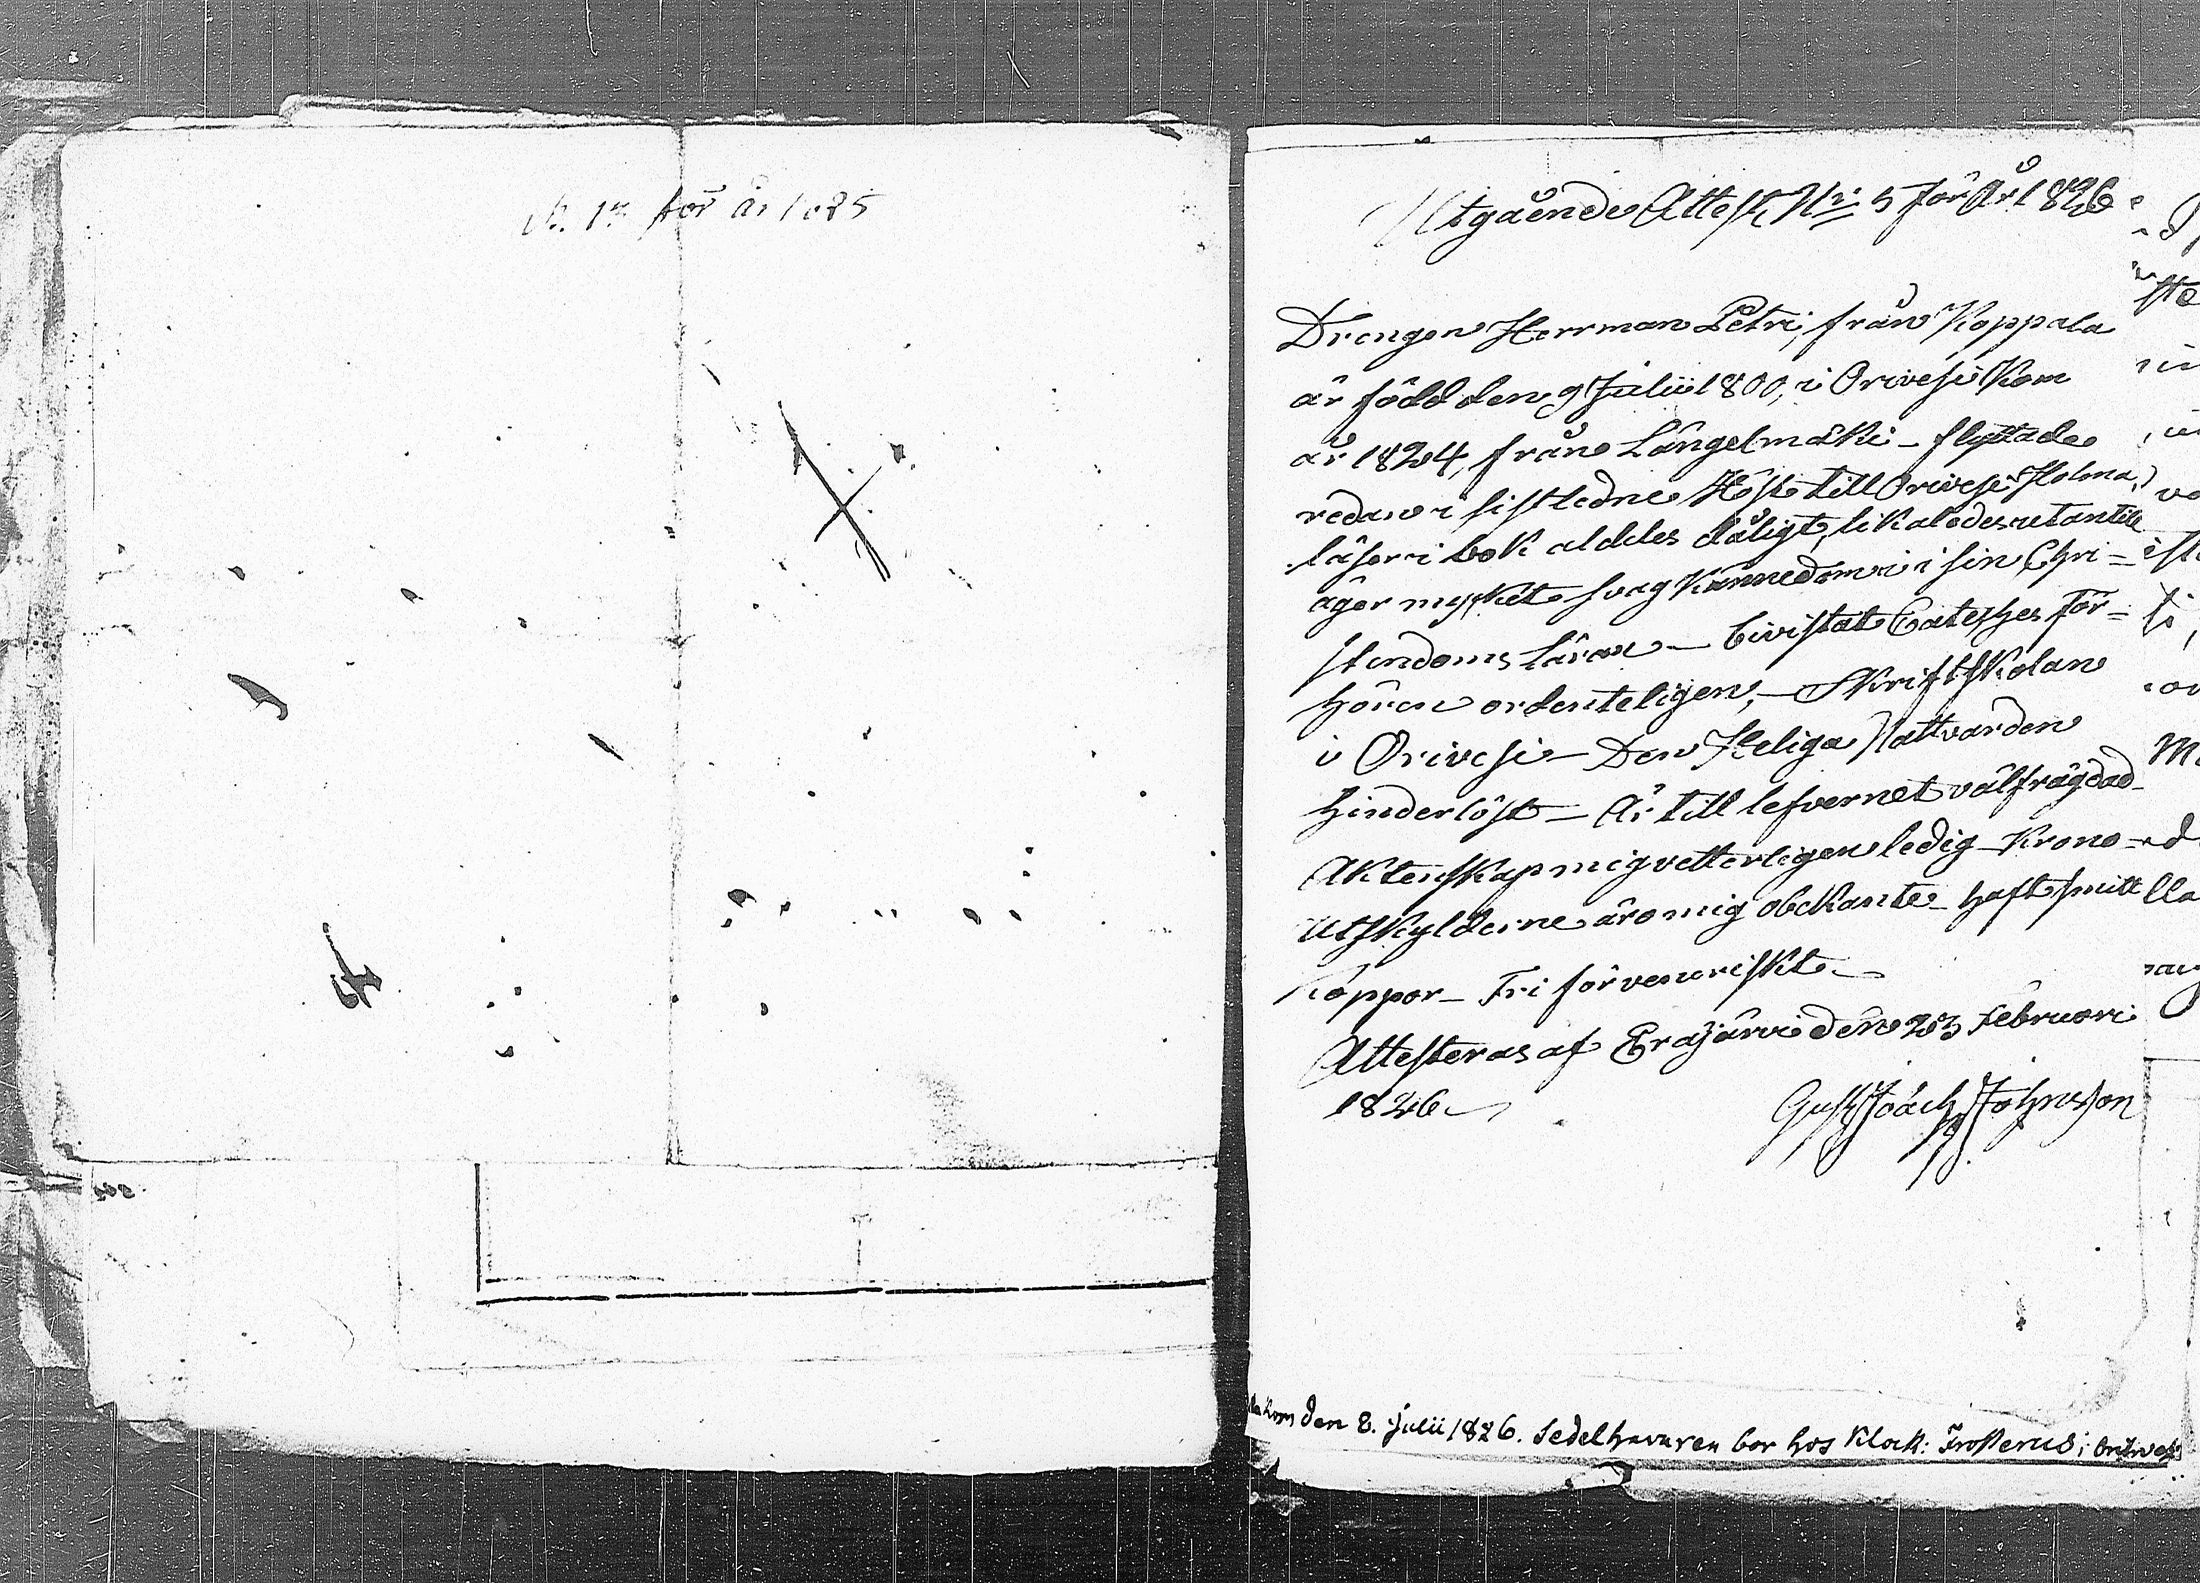 N. 17 för år 1825
Utgående Attest N: 5 för År 1826
Drengen Herrman Petri, från Koppala
är född den 9 Julii 1800, i Orivesi Kom
år 1824, från Längelmäki – flyttade
redan i sistledne Höst till Orivesi Holma,
läser i bok alddles dåligt, likaledes utantill
äger mycket svag kännedom i sin Chri=
stendoms läran – bivistat Cateches för=
hören ordenteligen, – Skriftskolan
i Orivesi – Den Heliga Nattvarden
hinderlöst – Är till lefvernet välfrägdad
Aktenskap mig vetterligen ledig – Krono
Utskylderne äro mig obekante – haft smitt
koppor – Fri för veneriskt –
Attesteras af Eräjärvi den 23 Februari
1826
Gust Joach Johnsson
den 8. Julii 1826. Sedelhavaren bor hos Klock: Frosterus i Orivesi